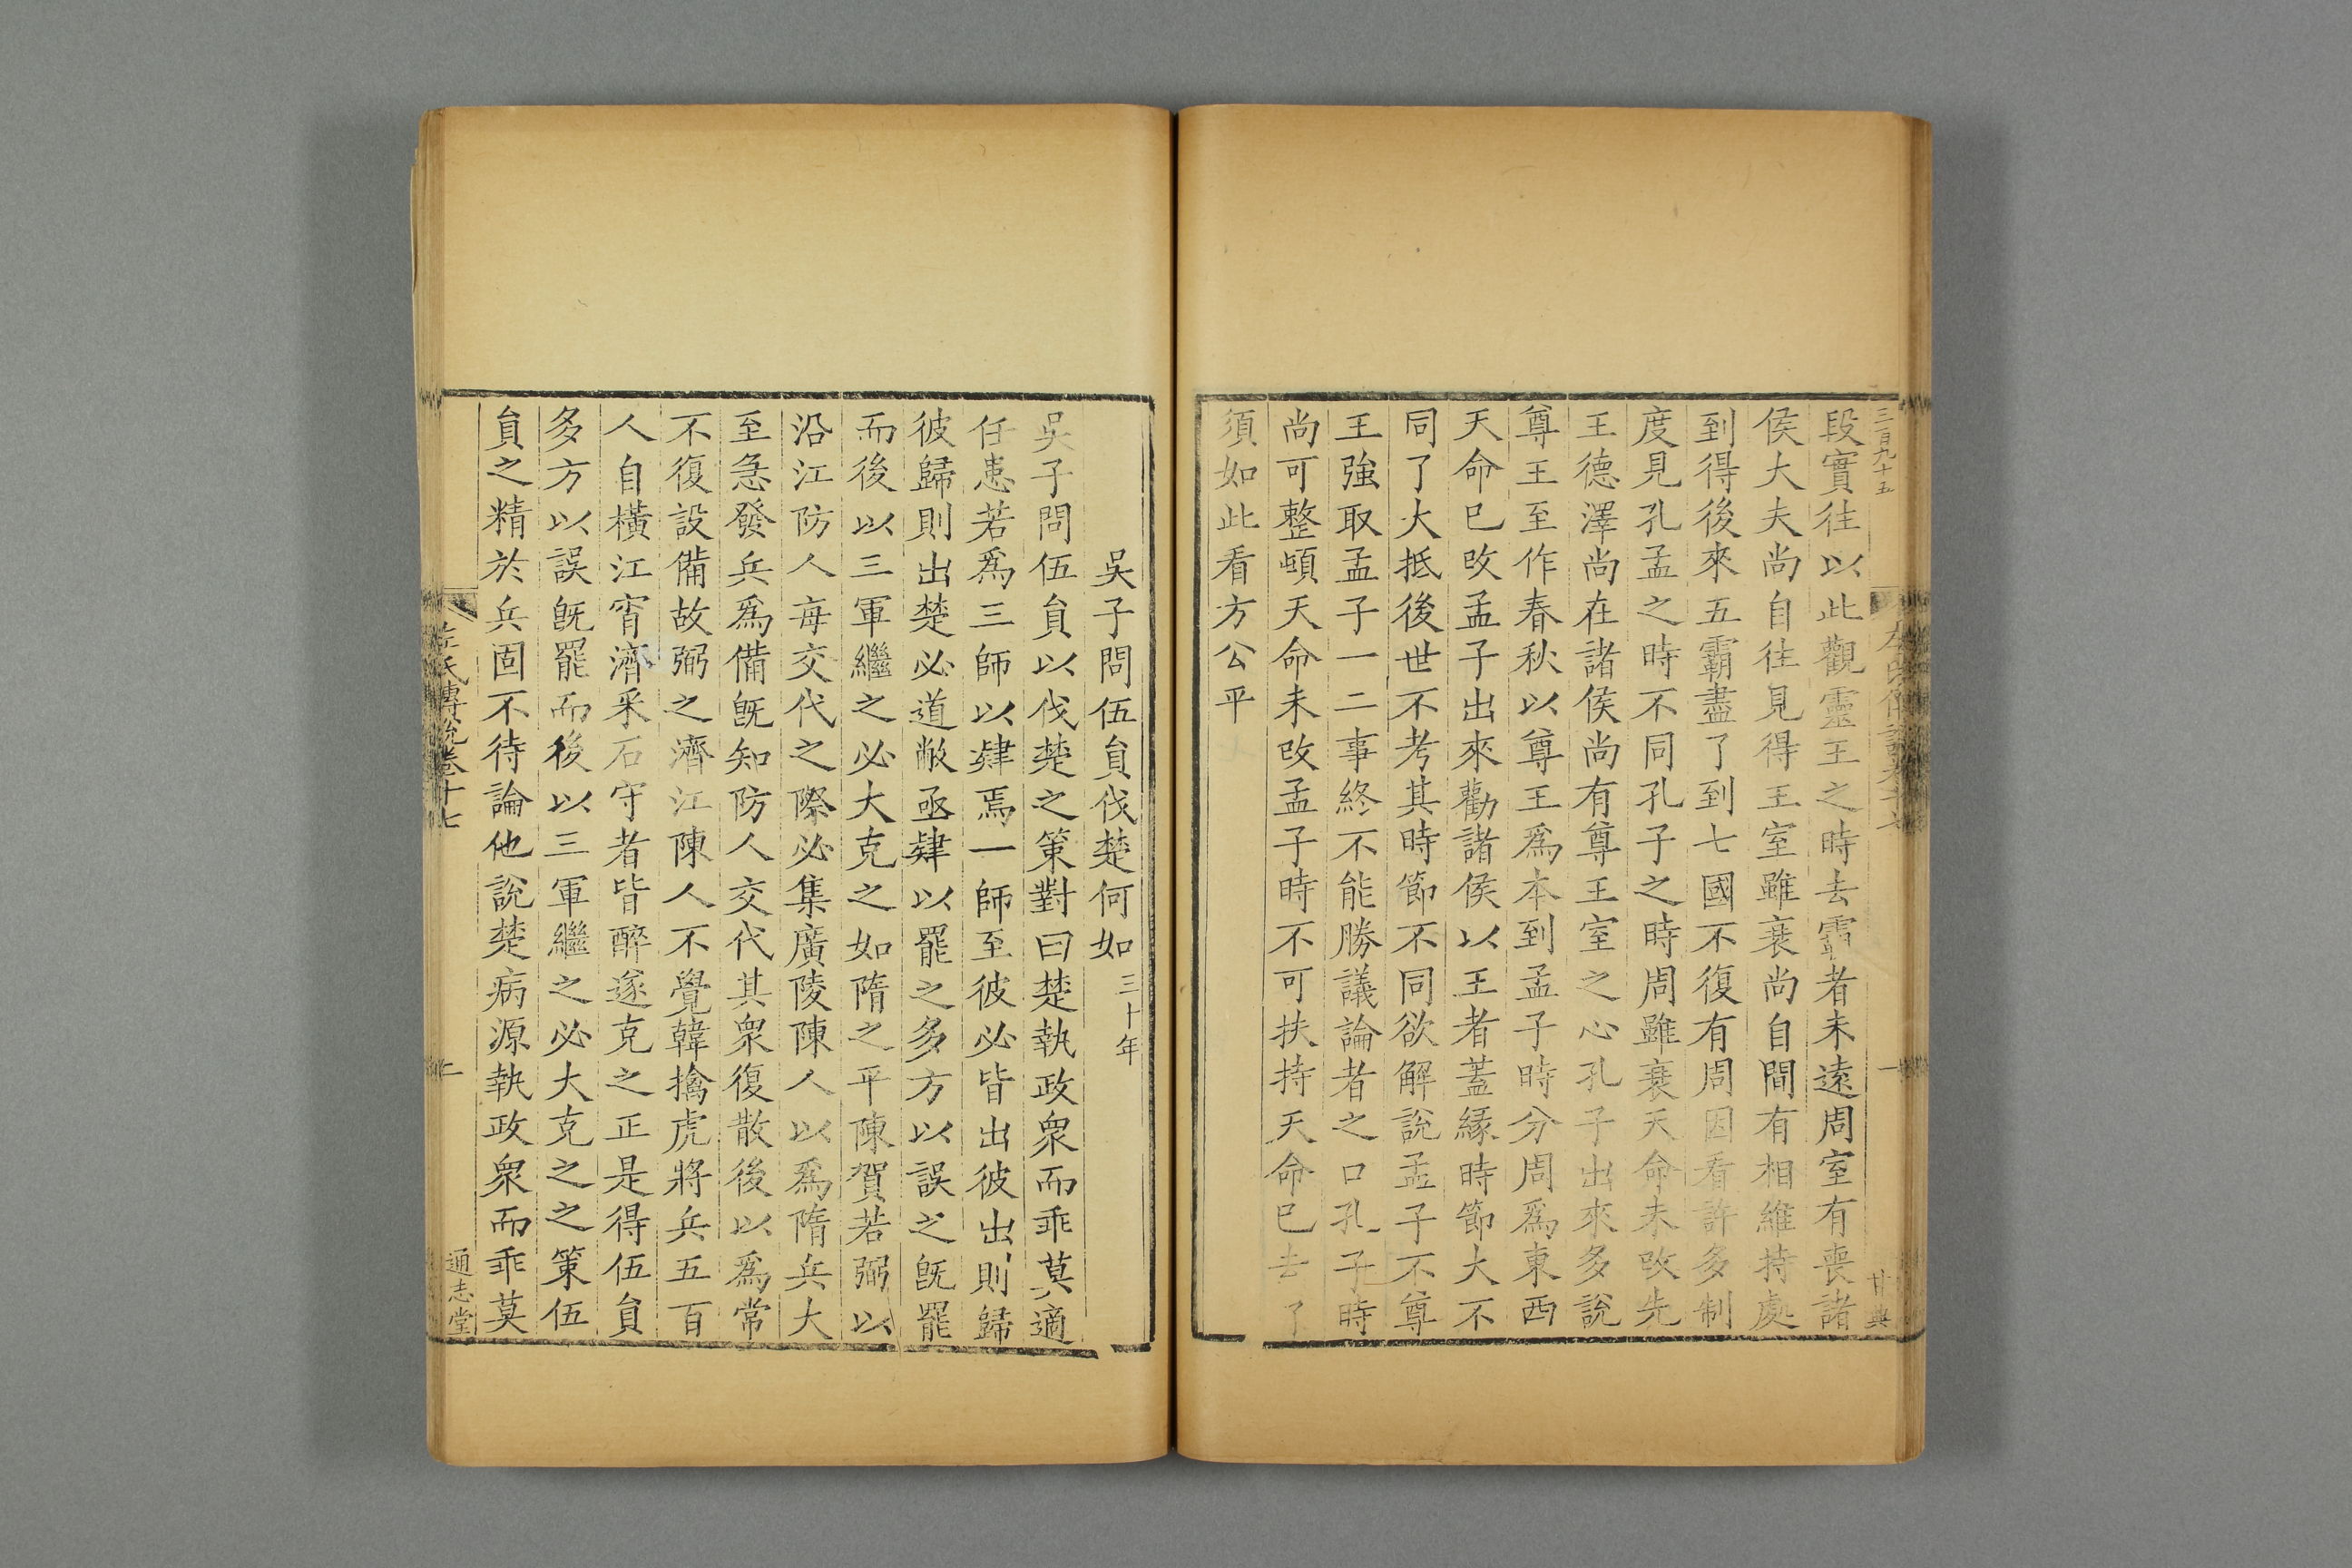 三百九十五
甘典
一
段實往以此觀靈王之時去霸者未遠周室有喪諸
侯大夫尚自往見得王室雖衰尚自間有相維持處
到得後來五霸盡了到七國不復有周因看許多制
度見孔孟之時不同孔子之時周雖衰天命未改先
王德澤尚在諸侯尚有尊王室之心孔子出來多說
尊王至作春秋以尊王爲本到孟子時分周爲東西
天命已改孟子出來勸諸侯以王者蓋緣時節大不
同了大抵後世不考其時節不同欲解說孟子不尊
王強取孟子一二事終不能勝議論者之口孔子時
尚可整頓天命未改孟子時不可扶持天命已去了
須如此看方公平
吳子問伍員伐楚何如三十年
吳子問伍員以伐楚之策對曰楚執政衆而乖莫適
任患若爲三師以肄焉一師至彼必皆出彼出則歸
彼歸則出楚必道敝亟肄以罷之多方以誤之旣罷
而後以三軍繼之必大克之如隋之平陳賀若弼以
沿江防人每交代之際必集廣陵陳人以爲隋兵大
至急發兵爲備旣知防人交代其衆復散後以爲常
不復設備故弼之濟江陳人不覺韓擒虎將兵五百
人自橫江宵濟采石守者皆醉遂克之正是得伍員
多方以誤旣罷而後以三軍繼之必大克之之策伍
員之精於兵固不待論他說楚病源執政衆而乖莫
左氏傳說卷十七
二
通志堂